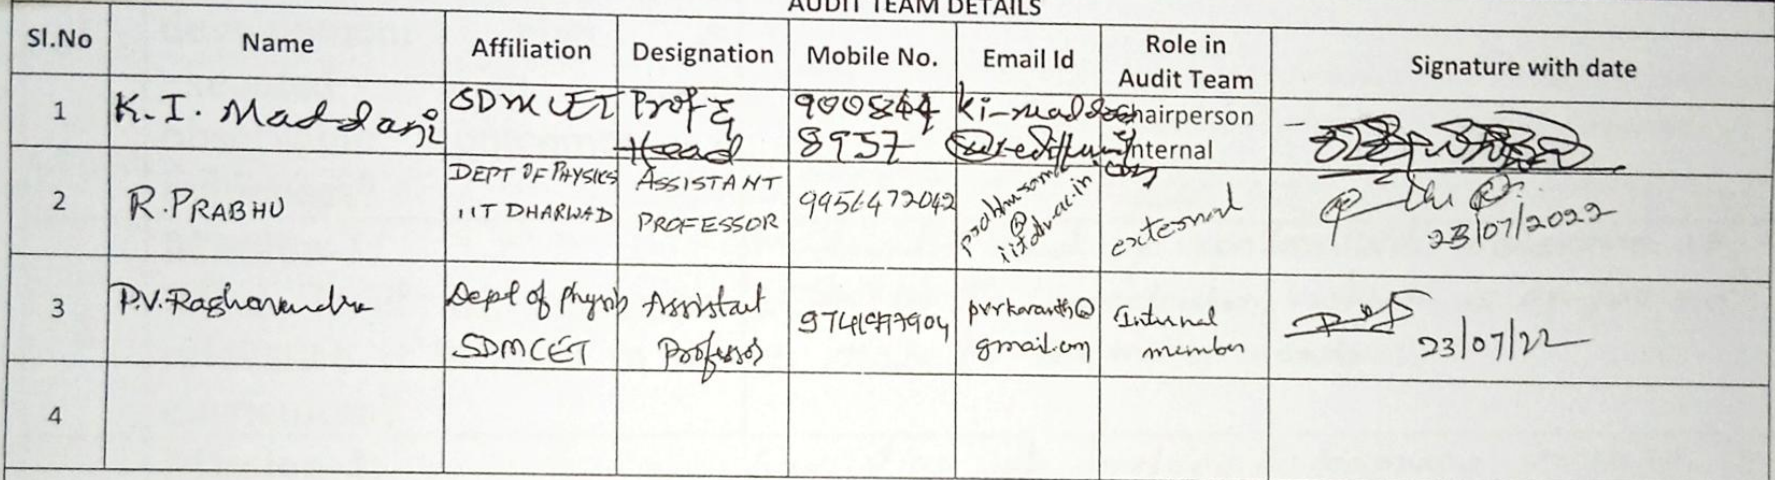 AUDIT TEAM DETAILS
Sl.No Name Affiliation Designation Mobile No. Email Id Role in Audit Team Signature with date
1 K.I. Maddani SDMCET Prof & Head 9005244 8957 Chairperson Internal
2 R.PRABHU DEPT OF PHYSICS IIT DHARWAD ASSISTANT PROFESSOR 9956472042 @ iitdh.ac.in external 23/07/2022
3 P.V.Raghavendra Dept of Physics SDMCET Assistant Professor pvrkaranth@ gmail.com Internal member 23/07/22
4